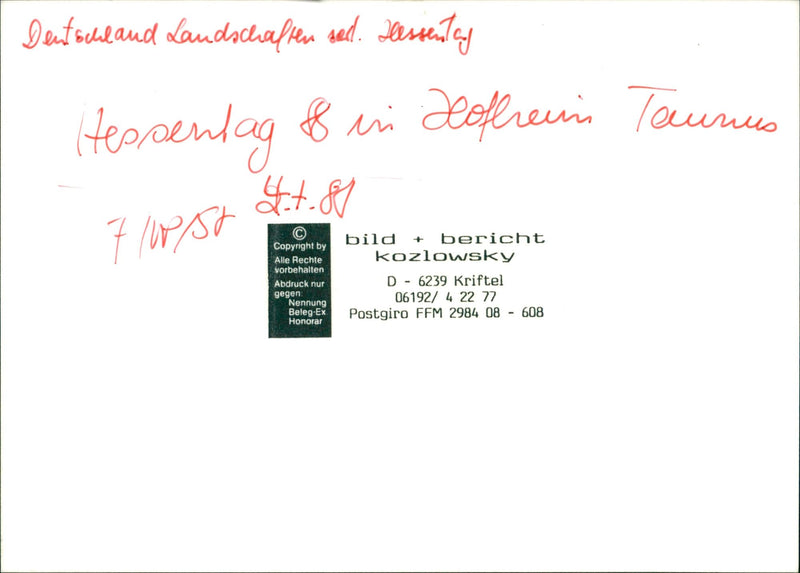 Deutschland Landschaften Hessentag
Hessentag 88 in Hofheim Taunus
©
Copyright by
Alle Rechte
vorbehalten
Abdruck nur
gegen:
Nennung
Beleg-Ex
Honorar
bild + bericht
kozlowsky
D - 6239 Kriftel
06192/ 4 22 77
Postgiro FFM 2984 08 - 608